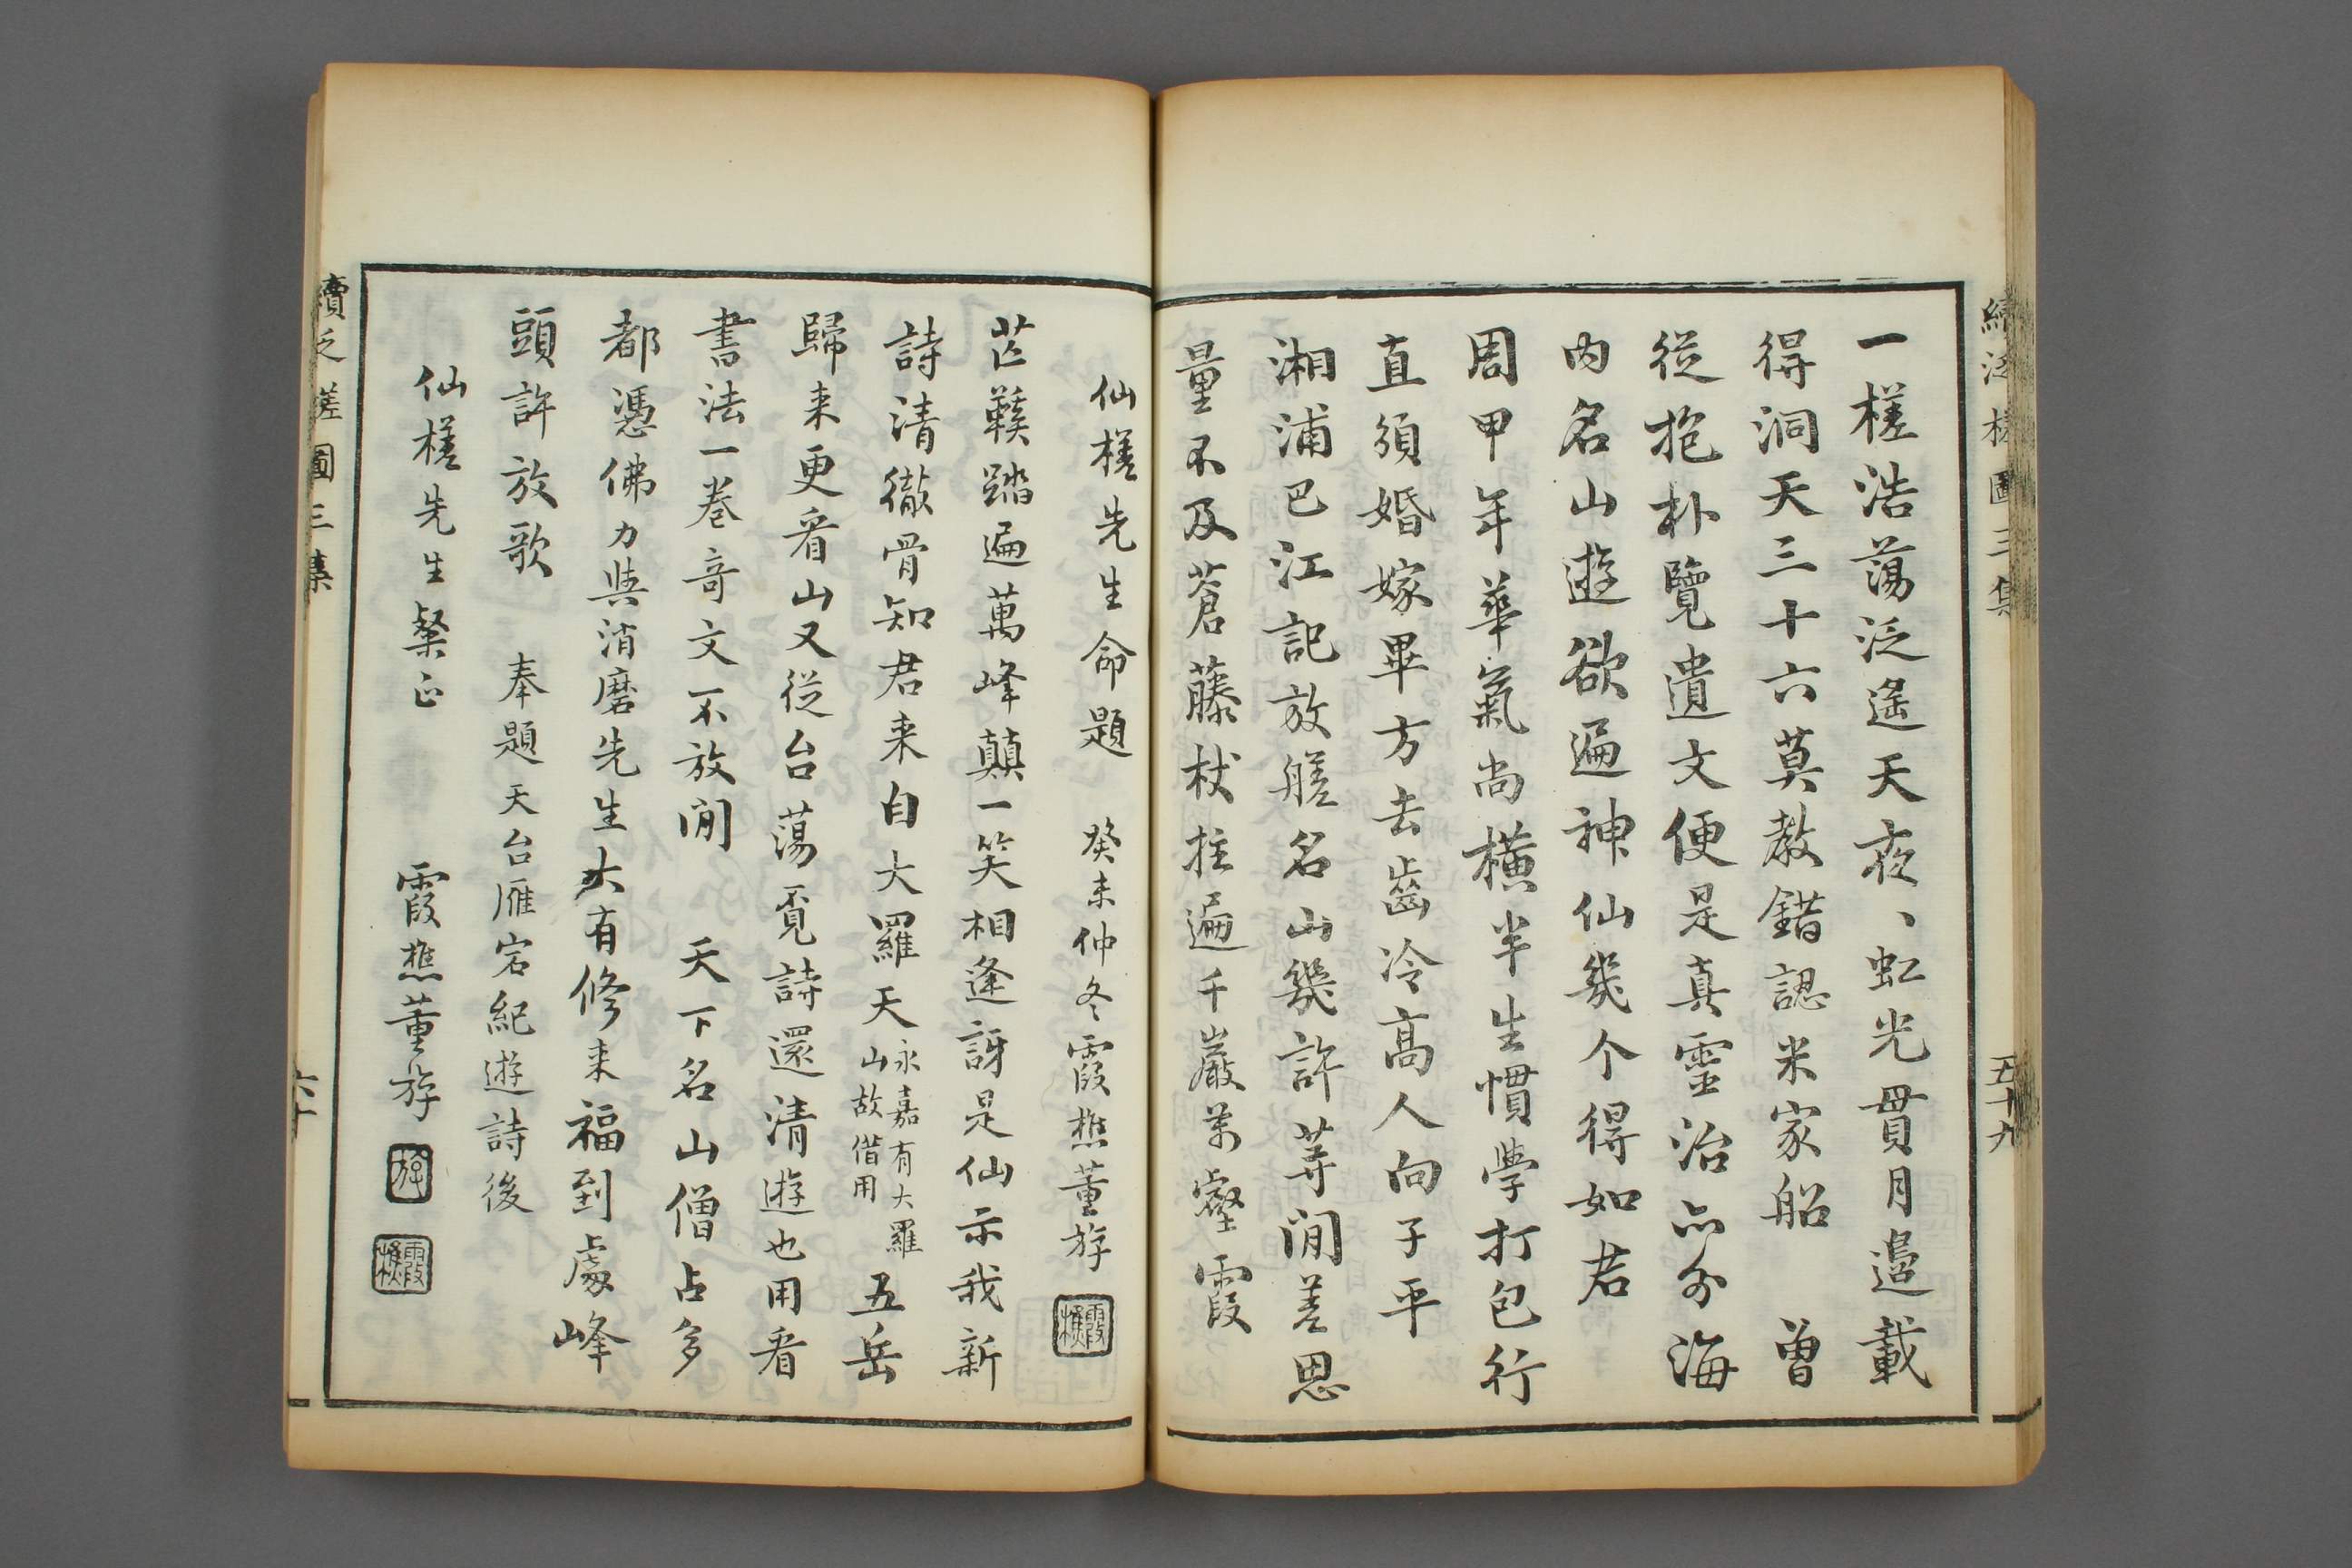 續泛槎圖三集
五十九
一槎浩蕩泛遙天夜、虹光貫月邉載
得洞天三十六莫教錯認米家船　曾
從抱朴覽遺文便是真靈治品分海
内名山遊欲遍神仙幾个得如君
周甲年華氣尚橫半生慣學打包行
直須婚嫁畢方去齒冷高人向子平
湘浦巴江記放艖名山幾許等閒差思
量不及蒼藤杖拄遍千巖萬壑霞
仙槎先生命題　癸未仲冬霞樵董斿
霞樵
芒鞵踏遍萬峰巔一笑相逢訝是仙示我新
詩清徹骨知君来自大羅天永嘉有大羅山故借用五岳
歸来更看山又從台蕩覓詩還清遊也用看
書法一卷奇文不放閒　天下名山僧占多
都憑佛力與消磨先生大有修来福到處峰
頭許放歌　奉題天台雁宕紀遊詩後
仙槎先生粲正　霞樵董斿
斿
霞樵
續泛槎圖三集
六十